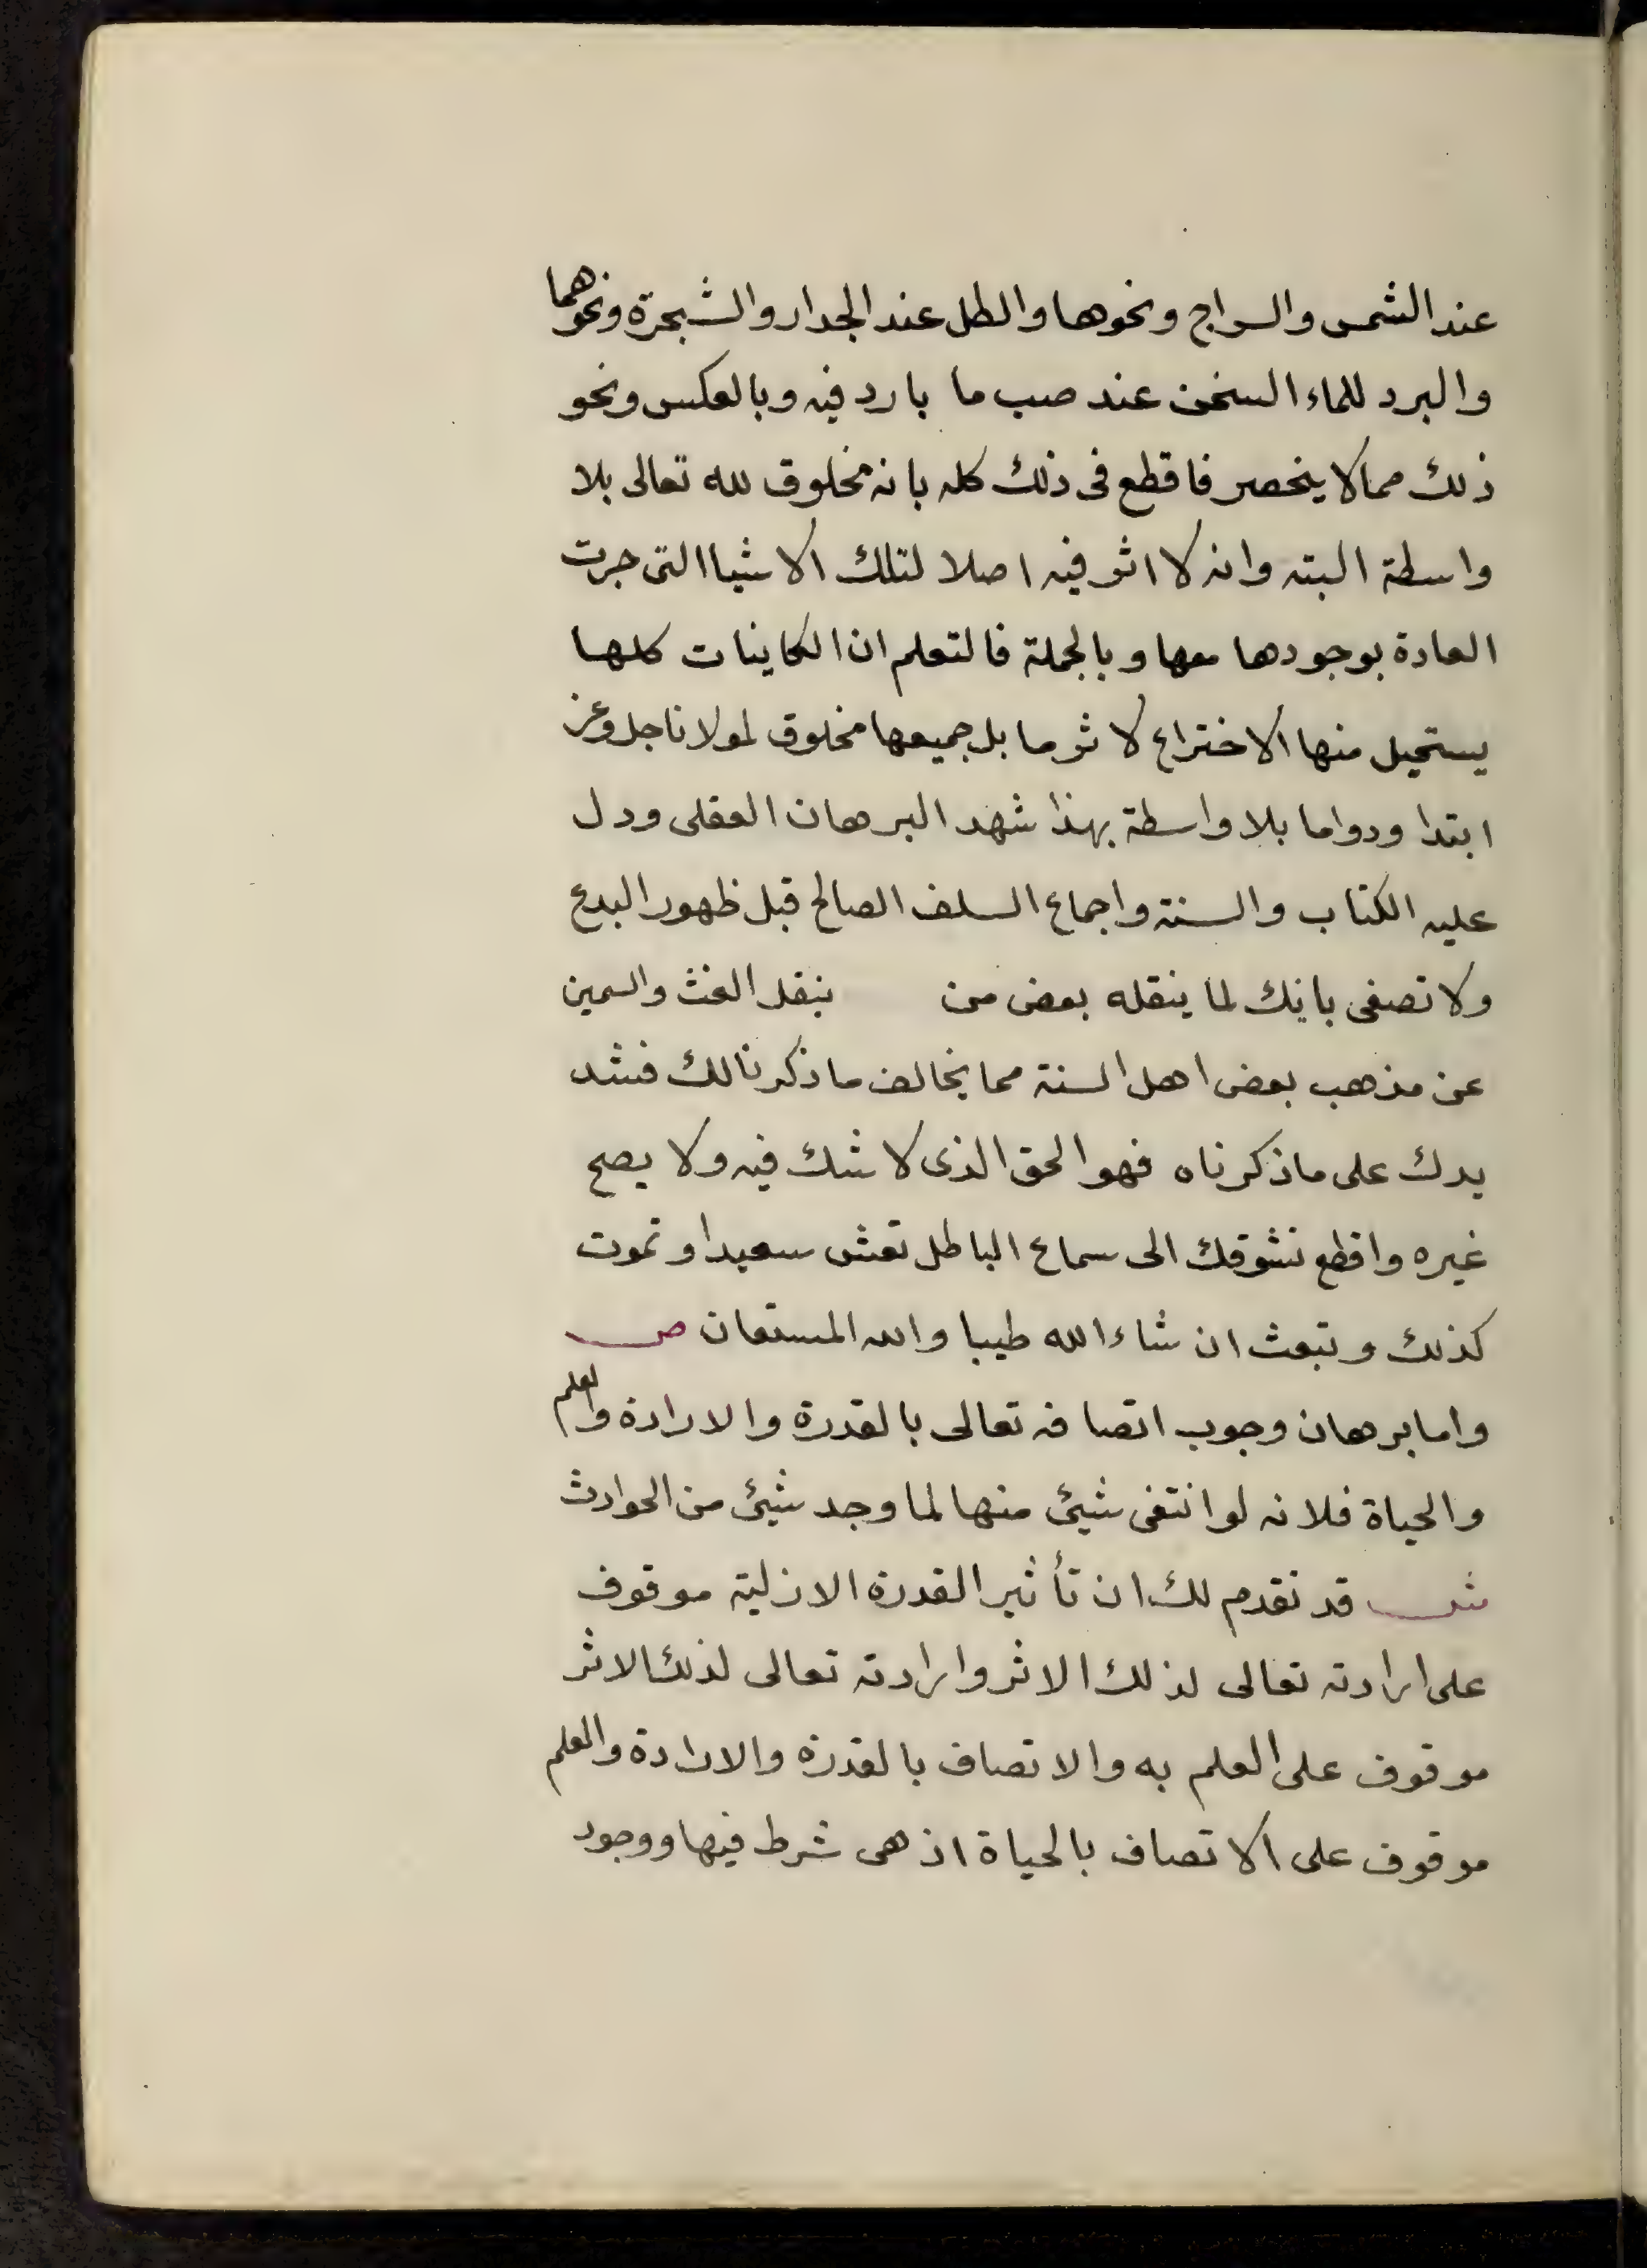 عند الشمس والسراج ونحوها والطل عند الجدار والشجرة ونحوهما
والبرد للماء السخن عند صب ما بارد فيه وبالعكس ونحو
ذلك مما لا ينحصر فاقطع فى ذلك كله بانه مخلوق لله تعالى بلا
واسطة البته وانه لا اثر فيه اصلا لتلك الاشيا التى جرت
العادة بوجودها معها وبالجملة فالتعلم ان الكاينات كلها
يستحيل منها الاختراع لا ثر ما بل جميعها مخلوق لمولانا جل وعز
ابتدا ودواما بلا واسطة بهذا شهد البرهان العقلى ودل
عليه الكتاب والسنة واجماع السلف الصالح قبل ظهور البدع
ولا تصغى باذنك لما ينقله بعض من ينقل الغث والسمين
عن مذهب بعض اهل السنة مما يخالف ما ذكرنا لك فشد
يدك على ما ذكرناه فهو الحق الذى لا شك فيه ولا يصح
غيره واقطع تشوقك الى سماع الباطل تعش سعيدا وتموت
كذلك وتبعث ان شاء الله طيبا والله المستعان ص
واما برهان وجوب اتصافه تعالى بالقدرة والارادة والعلم
والحياة فلانه لو انتفى شيئ منها لما وجد شيئ من الحوادث
ش قد تقدم لك ان تأثير القدرة الازلية موقوف
على ارادته تعالى لذلك الاثر وارادته تعالى لذلك الاثر
موقوف على العلم به والاتصاف بالقدرة والارادة والعلم
موقوف على الاتصاف بالحياة اذ هى شرط فيها ووجود